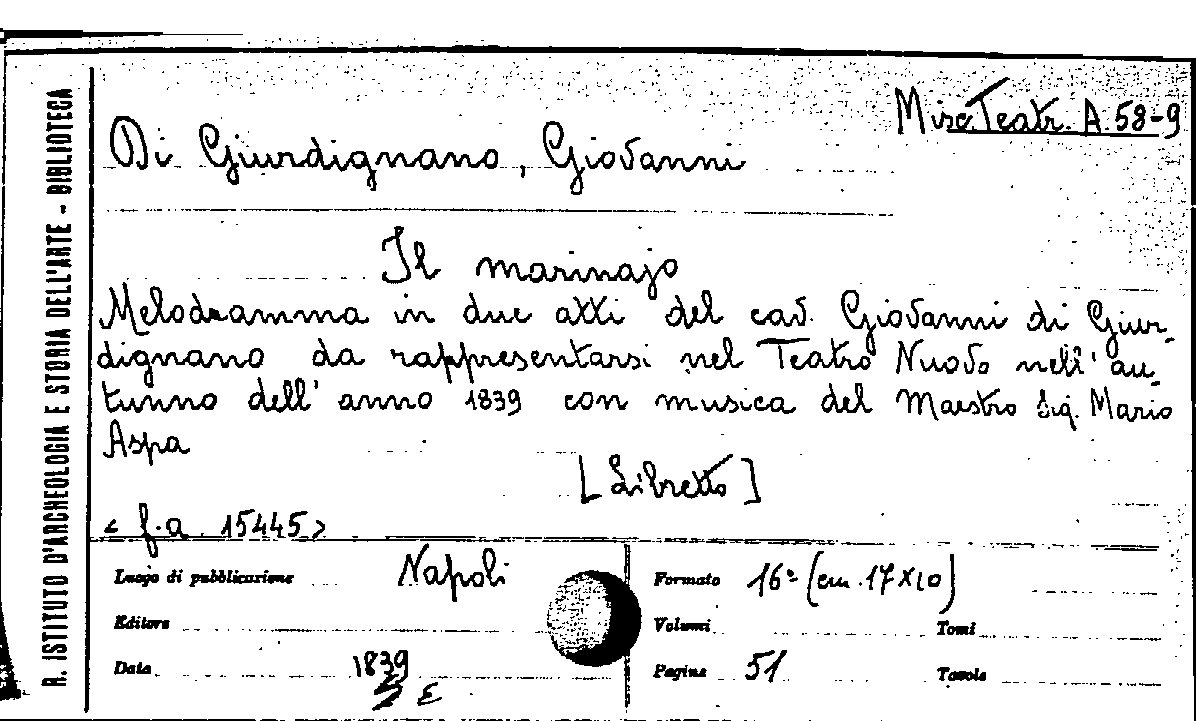 R. ISTITUTO D'ARCHEOLOGIA E STORIA DELL'ARTE - BIBLIOTECA
Misc. Teatr. A. 58-9
Di Giurdignano, Giovanni
Il marinajo
Melodramma in due atti del cav. Giovanni di Giur-
dignano da rappresentarsi nel Teatro Nuovo nell'au-
tunno dell'anno 1839 con musica del Maestro Sig. Mario
Aspa
[Libretto]
< f.a. 15445 >
Luogo di pubblicazione Napoli
Editore
Data 1839
E
Formato 16° (cm. 17x10)
Volumi Tomi
Pagine 51 Tavole